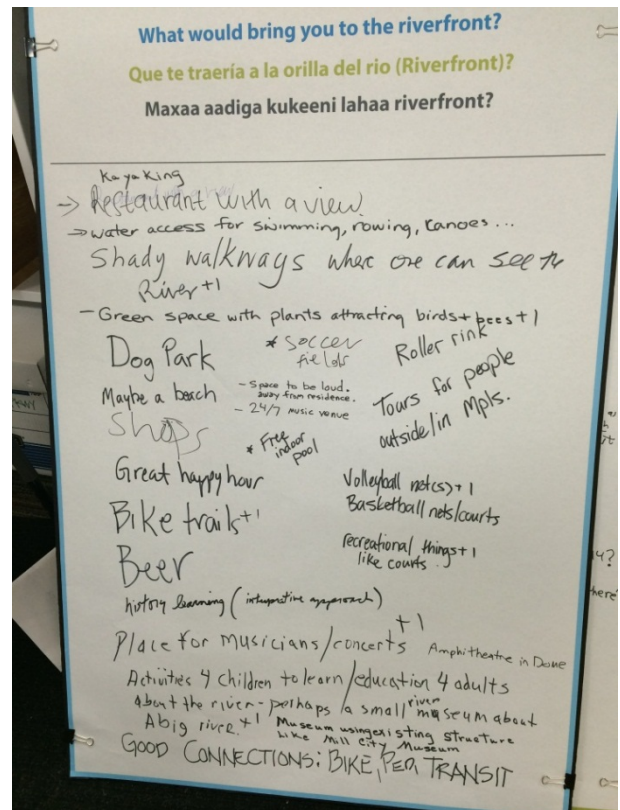 What would bring you to the riverfront?
Que te traería a la orilla del rio (Riverfront)?
Maxaa aadiga kukeeni lahaa riverfront?
Kayaking
→ Restaurant with a view
→ water access for swimming, rowing, canoes...
Shady walkways where one can see the
River +1
- Green space with plants attracting birds + bees +1
Dog Park
* Soccer
fields
Roller rink
Maybe a beach
- Space to be loud.
away from residence.
- 24/7 music venue
Tours for people
outside/in Mpls.
Shops
* Free
indoor
pool
Great happy hour
Volleyball net(s) +1
Basketball nets/courts
Bike trails +1
recreational things +1
like courts
Beer
history learning (interpretive approach)
Place for musicians/concerts +1
Amphitheatre in Dome
Activities 4 children to learn/education 4 adults
about the river - perhaps a small river museum about
A big river. +1
Museum using existing structure
Like Mill City Museum
GOOD CONNECTIONS: BIKE, PED, TRANSIT